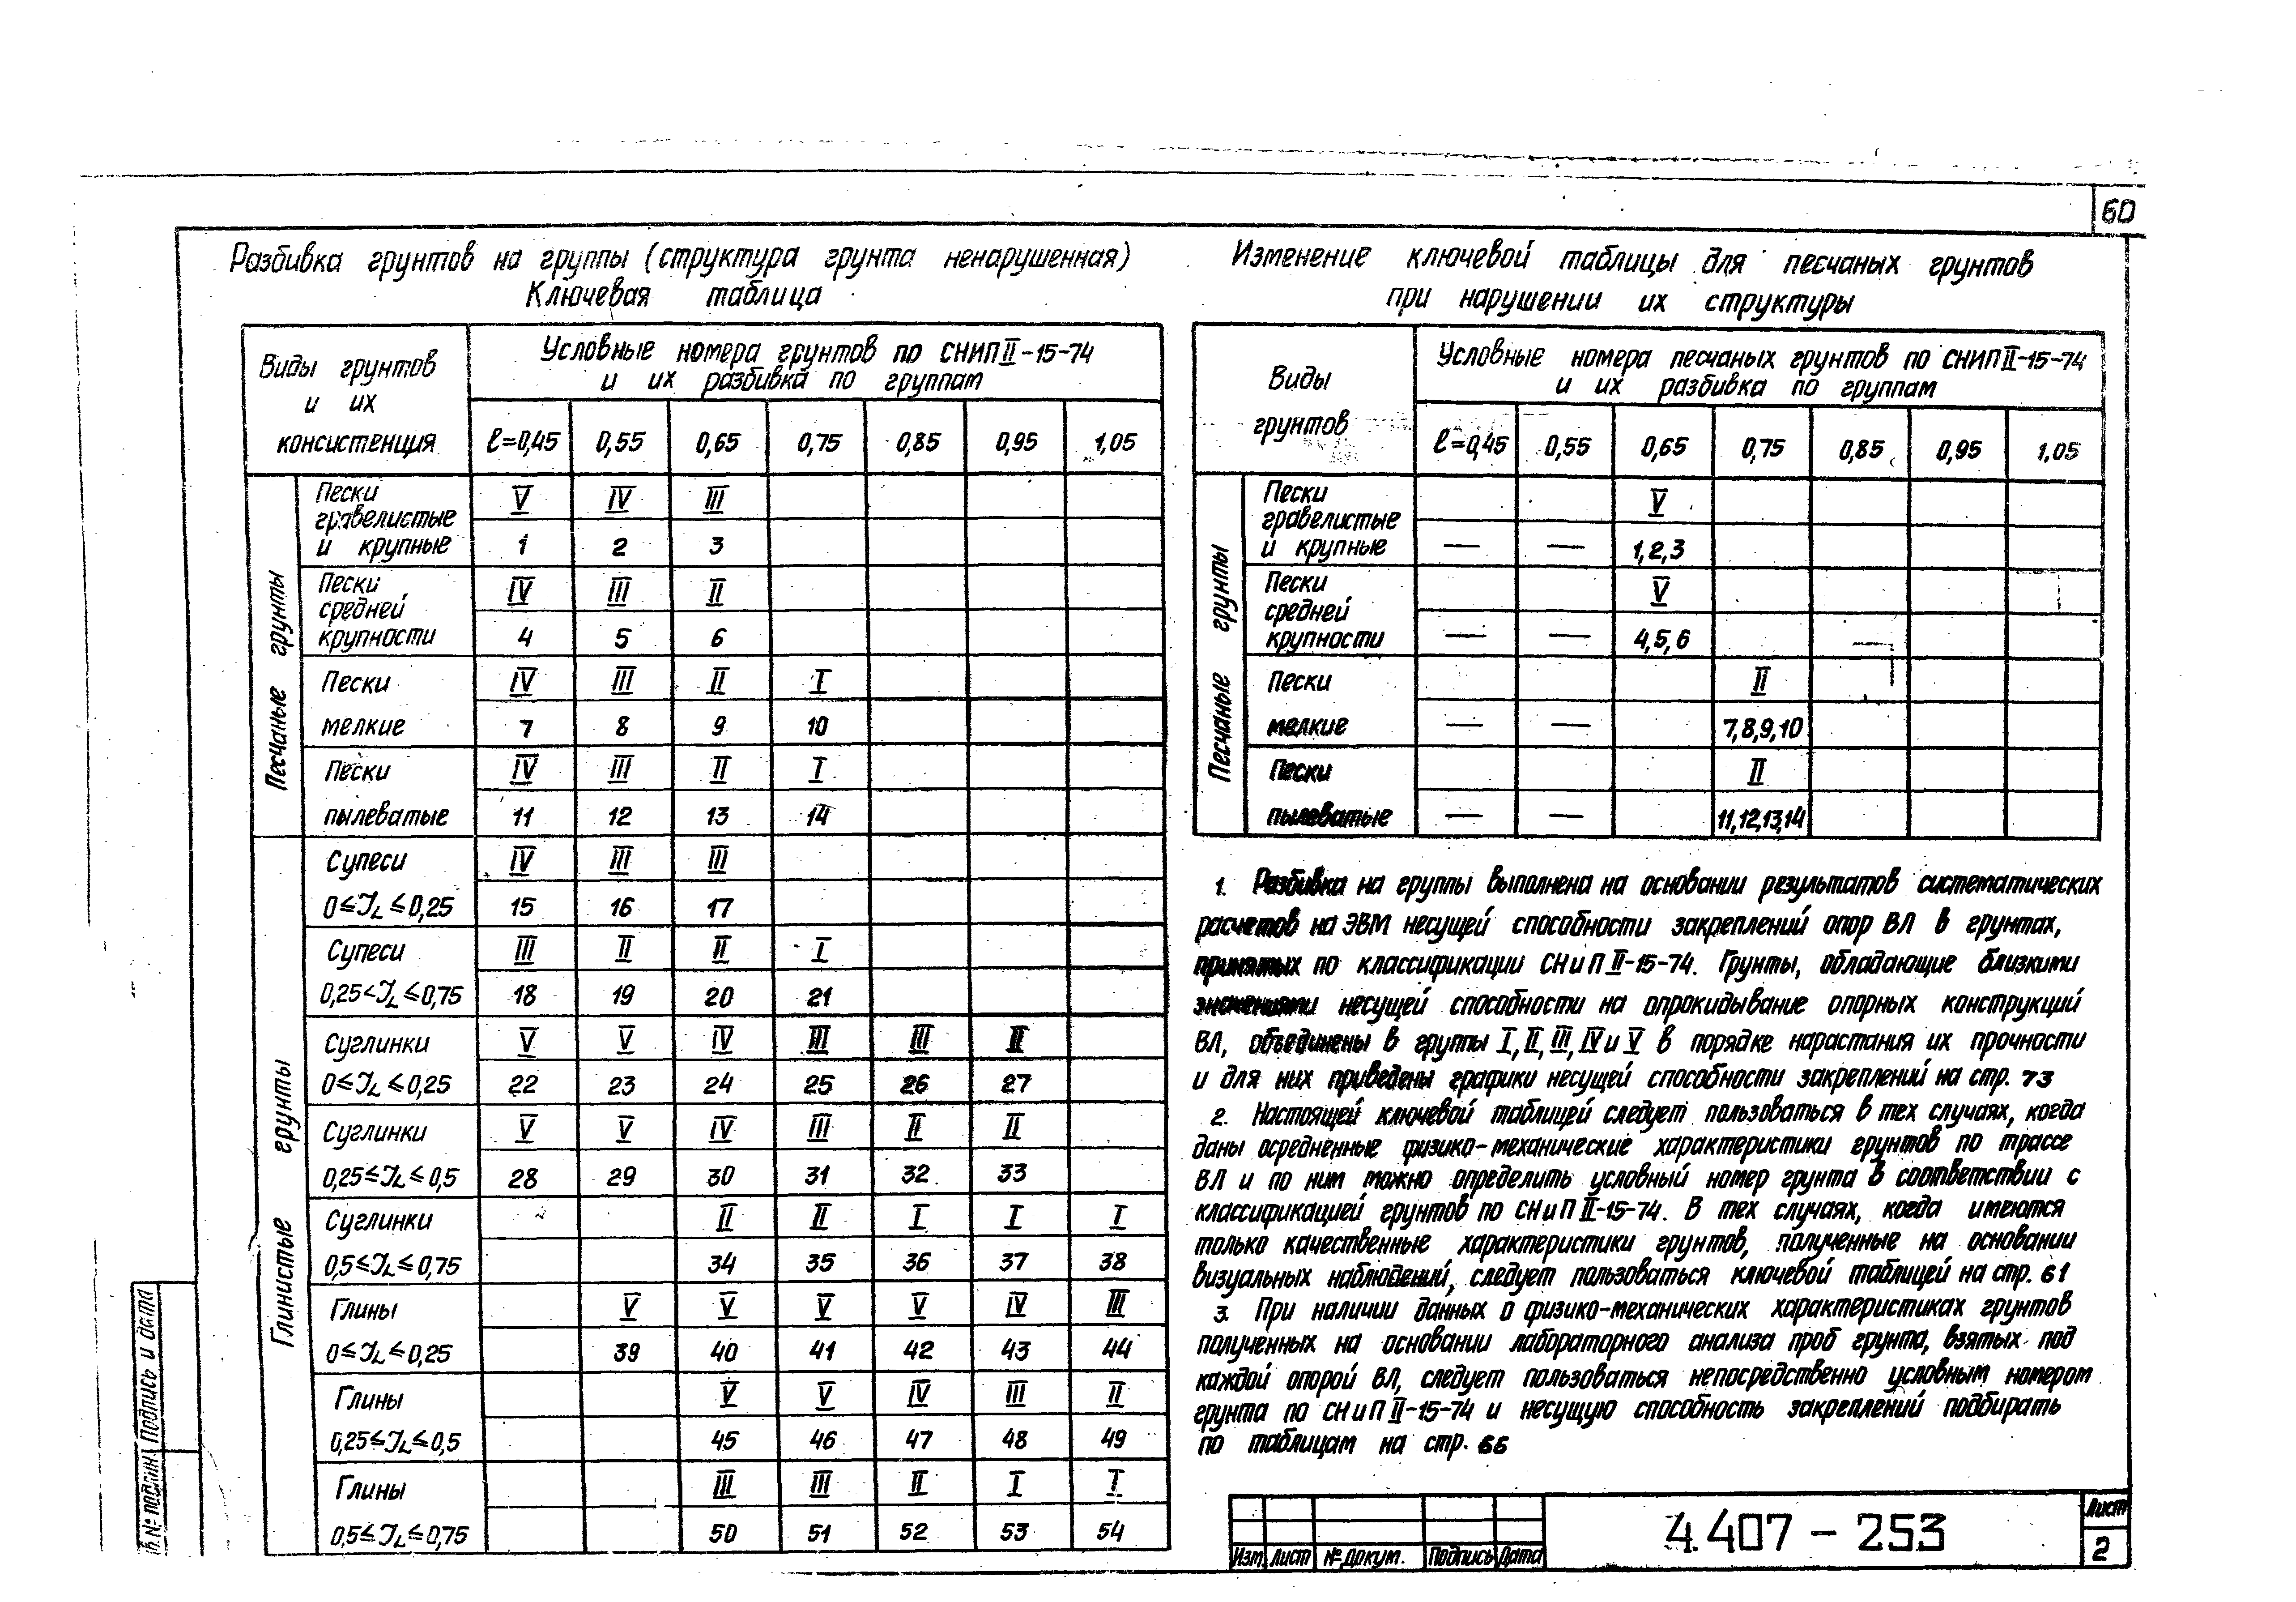 60
Разбивка грунтов на группы (структура грунта ненарушенная)
Ключевая таблица
Виды грунтов и их консистенция
Условные номера грунтов по СНИП II-15-74
и их разбивка по группам
ℓ=0,45 0,55 0,65 0,75 0,85 0,95 1,05
Песчаные грунты
Пески гравелистые и крупные
V IV III
1 2 3
Пески средней крупности
IV III II
4 5 6
Пески мелкие
IV III II I
7 8 9 10
Пески пылеватые
IV III II I
11 12 13 14
Глинистые грунты
Супеси
IV III III
0≤JL≤0,25 15 16 17
Супеси
III II II I
0,25<JL≤0,75 18 19 20 21
Суглинки
V V IV III III II
0≤JL≤0,25 22 23 24 25 26 27
Суглинки
V V IV III II II
0,25≤JL≤0,5 28 29 30 31 32 33
Суглинки
II II I I I
0,5≤JL≤0,75 34 35 36 37 38
Глины
V V V V IV III
0≤JL≤0,25 39 40 41 42 43 44
Глины
V V IV III II
0,25≤JL≤0,5 45 46 47 48 49
Глины
III III II I I
0,5≤JL≤0,75 50 51 52 53 54
Изменение ключевой таблицы для песчаных грунтов
при нарушении их структуры
Виды грунтов
Условные номера песчаных грунтов по СНИП II-15-74
и их разбивка по группам
ℓ=0,45 0,55 0,65 0,75 0,85 0,95 1,05
Песчаные грунты
Пески гравелистые и крупные
V
— — 1,2,3
Пески средней крупности
V
— — 4,5,6
Пески мелкие
II
— — 7,8,9,10
Пески пылеватые
II
— — 11,12,13,14
1. Разбивка на группы выполнена на основании результатов систематических
расчетов на ЭВМ несущей способности закреплений опор ВЛ в грунтах,
принятых по классификации СНиП II-15-74. Грунты, обладающие близкими
значениями несущей способности на опрокидывание опорных конструкций
ВЛ, объединены в группы I, II, III, IV и V в порядке нарастания их прочности
и для них приведены графики несущей способности закреплений на стр. 73
2. Настоящей ключевой таблицей следует пользоваться в тех случаях, когда
даны осредненные физико-механические характеристики грунтов по трассе
ВЛ и по ним можно определить условный номер грунта в соответствии с
классификацией грунтов по СНиП II-15-74. В тех случаях, когда имеются
только качественные характеристики грунтов, полученные на основании
визуальных наблюдений, следует пользоваться ключевой таблицей на стр. 61
3. При наличии данных о физико-механических характеристиках грунтов
полученных на основании лабораторного анализа проб грунта, взятых под
каждой опорой ВЛ, следует пользоваться непосредственно условным номером
грунта по СНиП II-15-74 и несущую способность закреплений подбирать
по таблицам на стр. 66
Изм Лист № докум. Подпись Дата
4.407-253
Лист
2
Подпись и дата